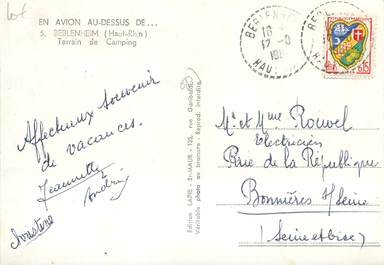 Lot
EN AVION AU-DESSUS DE...
5. BEBLENHEIM (Haut-Rhin)
Terrain de Camping
Affectueux souvenir
de vacances.
Jeannette
Andrée
Christiane
Edition LAPIE - St-MAUR - 125, rue Garibaldi
Véritable photo au bromure - Reprod. interdite.
BEBLENHEIM
18
17-8
HAUT
0,15
Mr et Mme Rouvel
Electricien
Rue de la République
Bonnières s/Seine
(Seine et Oise)